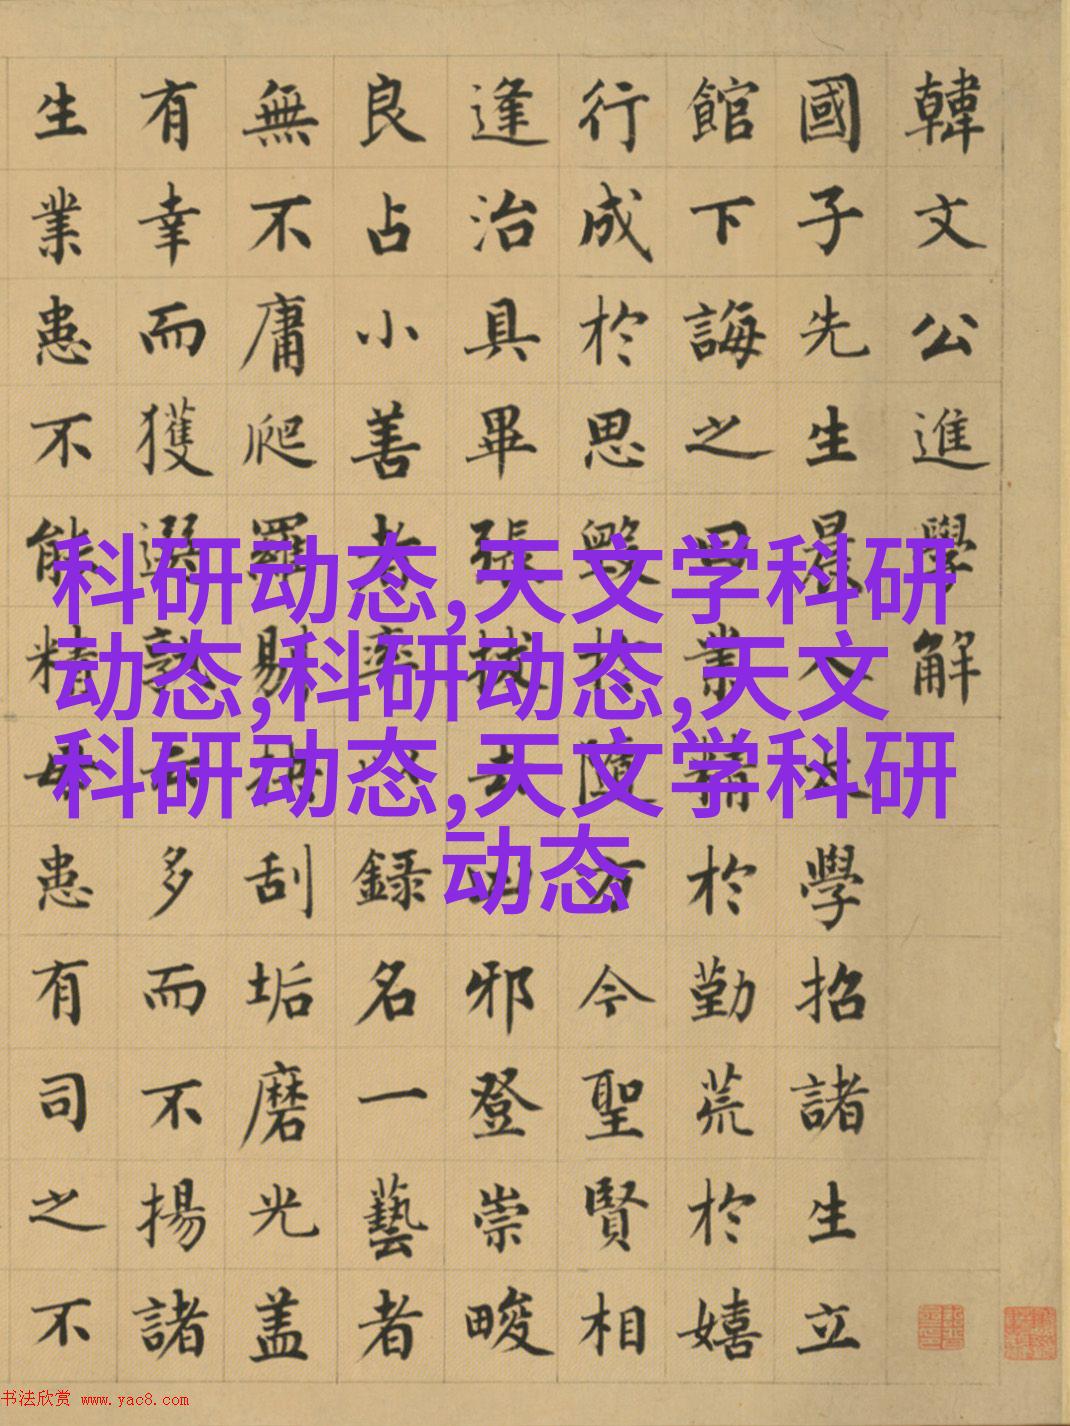 韓文公進學解
國子先生晨入太學招諸生立
館下誨之曰業精於勤荒於嬉
行成於思毀於隨方今聖賢相
逢治具畢張拔去凶邪登崇畯
良占小善者率以錄名一藝者
無不庸爬羅剔抉刮垢磨光盖
有幸而獲選孰云多而不揚諸
生業患不能精患有司之不
科研动态,天文学科研
动态,科研动态,天文
科研动态,天文学科研
动态
书法欣赏 www.yac8.com